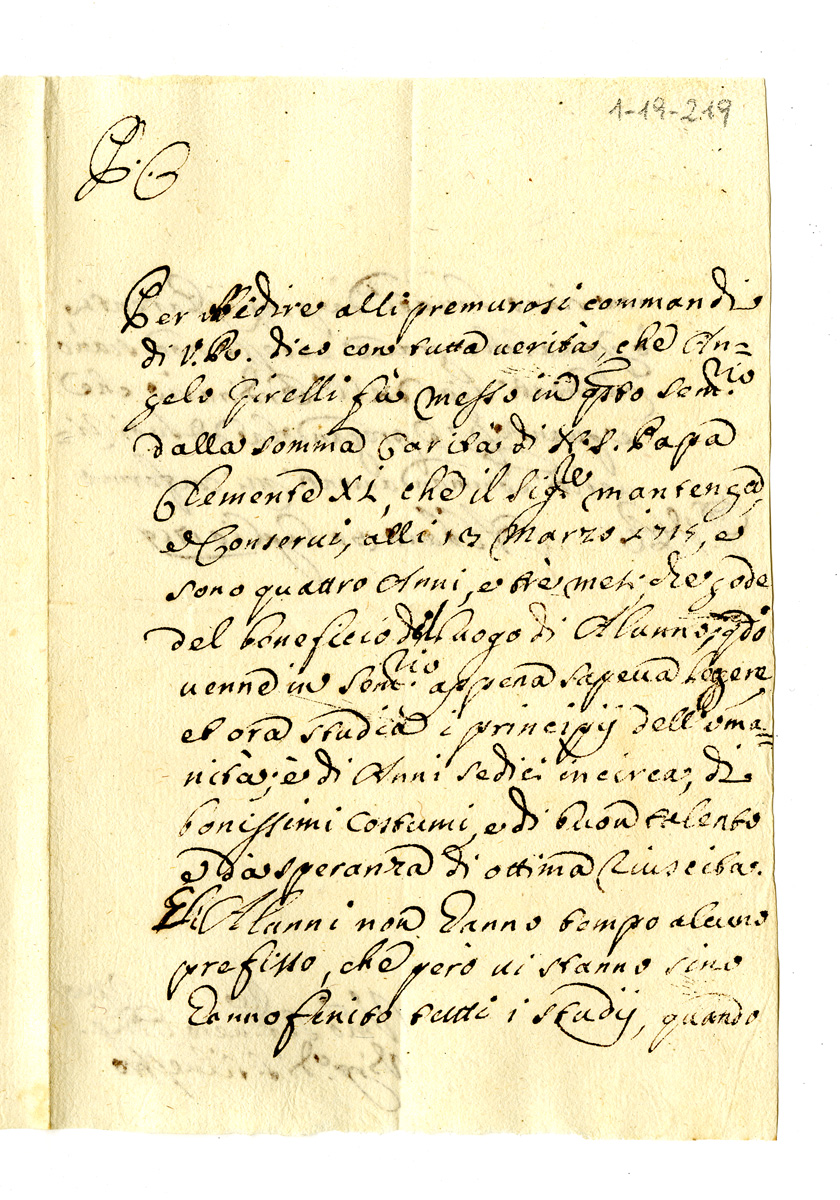 1-19-219
P. C
Per obbedire alli premurosi commandi
di V.R. dico con tutta verità, che An=
gelo Girelli fù messo in q̃sto Sem.rio
dalla somma Carità di N.S. Papa
Clemente XI, che il Sig.re mantenga,
e Conservi, alli 13 Marzo 1715, e
sono quattro Anni, e trè mesi, che gode
del beneficio del luogo di Alunno, q̃do
venne in Sem.rio appena sapeva legere,
et ora studia i principij dell'vma=
nità; è di Anni sedici in circa, di
bonissimi Costumi, e di buon talento
e dà speranza di ottima riuscita.
Gli Alunni non hanno tempo alcuno
prefisso, che però vi stanno sino
hanno finito tutti i studij, quando